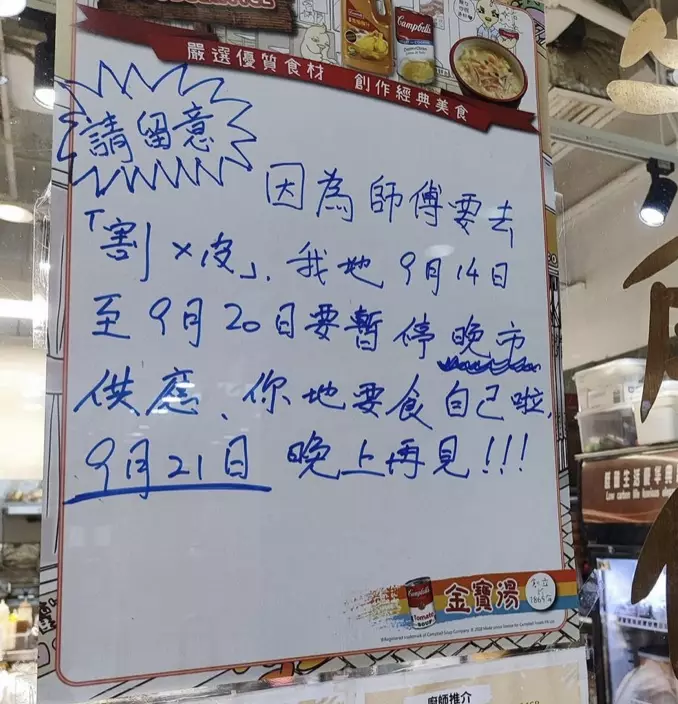 嚴選優質食材 創作經典美食
Campbell's
請留意
因為師傅要去
「割×皮」, 我地 9月14日
至 9月20日要暫停晚市
供應、你地要食自己啦,
9月21日 晚上再見!!!
Campbell's
Tomato
SOUP
金寶湯
創立於1869年
Low carbon life
廚師推介